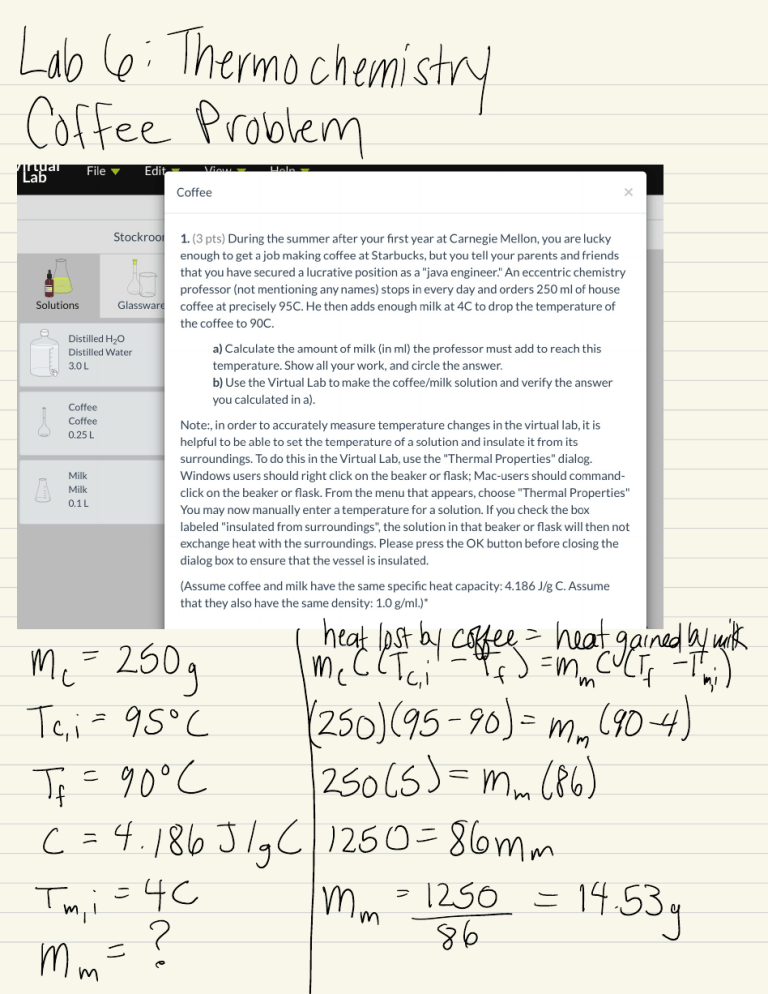 Lab 6: Thermochemistry
Coffee Problem
Virtual
Lab
File Edit View Help
Coffee ×
Stockroo
Solutions Glassware
Distilled H₂O
Distilled Water
3.0 L
Coffee
Coffee
0.25 L
Milk
Milk
0.1 L
1. (3 pts) During the summer after your first year at Carnegie Mellon, you are lucky
enough to get a job making coffee at Starbucks, but you tell your parents and friends
that you have secured a lucrative position as a "java engineer." An eccentric chemistry
professor (not mentioning any names) stops in every day and orders 250 ml of house
coffee at precisely 95C. He then adds enough milk at 4C to drop the temperature of
the coffee to 90C.
a) Calculate the amount of milk (in ml) the professor must add to reach this
temperature. Show all your work, and circle the answer.
b) Use the Virtual Lab to make the coffee/milk solution and verify the answer
you calculated in a).
Note:, in order to accurately measure temperature changes in the virtual lab, it is
helpful to be able to set the temperature of a solution and insulate it from its
surroundings. To do this in the Virtual Lab, use the "Thermal Properties" dialog.
Windows users should right click on the beaker or flask; Mac-users should command-
click on the beaker or flask. From the menu that appears, choose "Thermal Properties"
You may now manually enter a temperature for a solution. If you check the box
labeled "insulated from surroundings", the solution in that beaker or flask will then not
exchange heat with the surroundings. Please press the OK button before closing the
dialog box to ensure that the vessel is insulated.
(Assume coffee and milk have the same specific heat capacity: 4.186 J/g C. Assume
that they also have the same density: 1.0 g/ml.)*
m_c = 250g
T_c,i = 95°C
T_f = 90°C
C = 4.186 J/gC
T_m,i = 4C
m_m = ?
heat lost by coffee = heat gained by milk
m_c C (T_c,i - T_f) = m_m C (T_f - T_m,i)
(250)(95-90) = m_m (90-4)
250(5) = m_m (86)
1250 = 86 m_m
m_m = 1250/86 = 14.53g